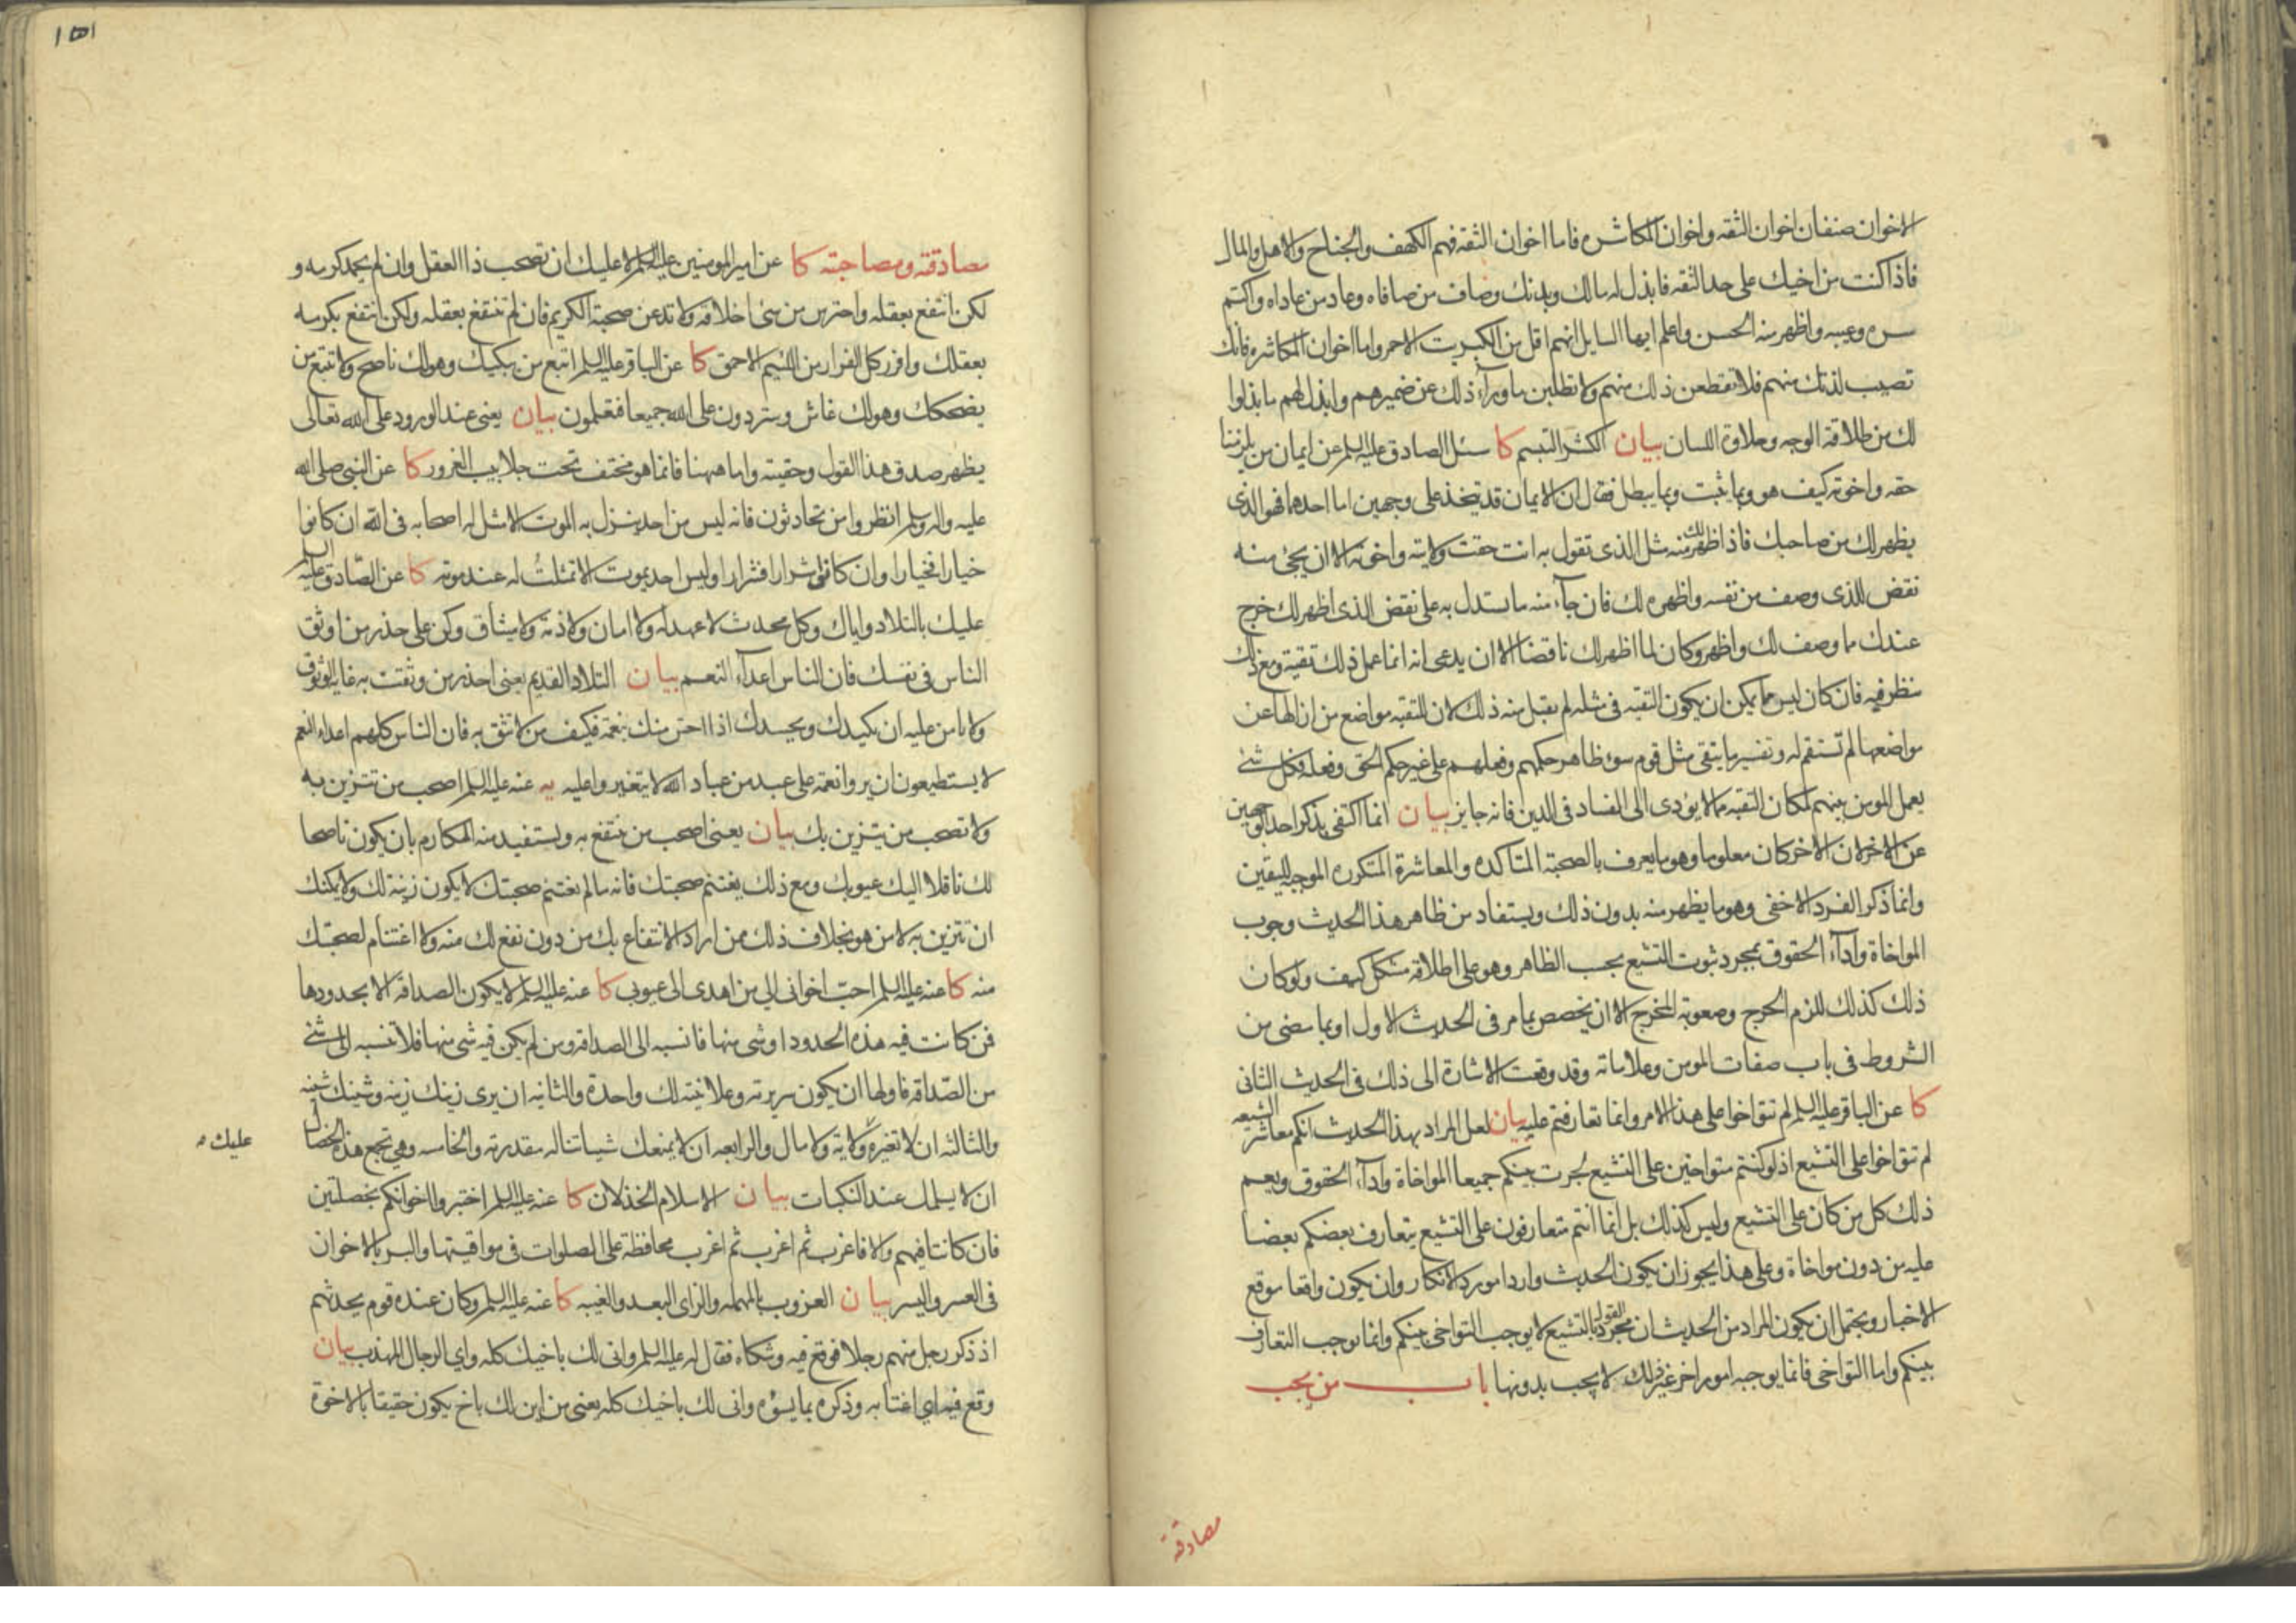 الاخوان صنفان اخوان الثقه واخوان المكاشره فاما اخوان الثقه فهم الكهف والجناح والاهل والمال
فاذا كنت من اخيك على حد الثقه فابذل له مالك وبدنك وصاف من صافاه وعاد من عاداه واكتم
سره وعيبه واظهر منه الحسن واعلم ايها السايل انهم اقل من الكبريت الاحمر واما اخوان المكاشره فانك
تصيب لذتك منهم فلا تقطعن ذلك منهم ولا تطلبن ما وراء ذلك عن ضميرهم وابذل لهم ما بذلوا
لك من طلاقة الوجه وحلاوة اللسان بيان الكشر التبسم كا سئل الصادق عليه السلم عن ايمان من يلزمنا
حقه واخوته كيف هو وبما يثبت وبما يبطل فقال ان الايمان قد يتخذ على وجهين اما احدهما فهو الذى
يظهر لك من صاحبك فاذا ظهر لك منه مثل الذى تقول به انت حقت ولايته واخوته الا ان يجئ منه
نقض للذى وصف من نفسه واظهره لك فان جاء منه ما تستدل به على نقض الذى اظهر لك خرج
عندك مما وصف لك واظهر وكان لما اظهر لك ناقضا الا ان يدعى انه انما عمل ذلك تقية ومع ذلك
ينظر فيه فان كان ليس مما يمكن ان يكون التقيه فى مثله لم يقبل منه ذلك لان للتقيه مواضع من ازالها عن
مواضعها لم تستقم له وتفسير ما يتقى مثل قوم سوء ظاهر حكمهم وفعلهم على غير حكم الحق وفعله فكل شئ
يعمل المومن بينهم لمكان التقيه مما لا يؤدى الى الفساد فى الدين فانه جايز بيان انما اكتفى بذكر احد الوجهين
عن الاخر لان الاخر كان معلوما وهو ما يعرف بالصحبة المتاكده والمعاشرة المتكرره الموجبه لليقين
وانما ذكر الفرد الاخفى وهو ما يظهر منه بدون ذلك ويستفاد من ظاهر هذا الحديث وجوب
المواخاة واداء الحقوق بمجرد ثبوت التشيع بحسب الظاهر وهو على اطلاقه مشكل كيف ولو كان
ذلك كذلك للزم الحرج وصعوبة المخرج الا ان يخصص بما مر فى الحديث الاول او بما مضى من
الشروط فى باب صفات المومن وعلاماته وقد وقعت الاشارة الى ذلك فى الحديث الثانى
كا عن الباقر عليه السلم لم تتواخوا على هذا الامر وانما تعارفتم عليه بيان لعل المراد بهذا الحديث انكم معاشر الشيعه
لم تتواخوا على التشيع اذ لو كنتم متواخين على التشيع لجرت بينكم جميعا المواخاة واداء الحقوق ويعم
ذلك كل من كان على التشيع وليس كذلك بل انما انتم متعارفون على التشيع يتعارف بعضكم بعضا
عليه من دون مواخاة وعلى هذا يجوز ان يكون الحديث واردا مورد الانكار وان يكون واقعا موقع
الاخبار ويحتمل ان يكون المراد من الحديث ان مجرد القول بالتشيع لا يوجب التواخى بينكم وانما يوجب التعارف
بينكم واما التواخى فانما يوجبه امور اخر غير ذلك لا يجب بدونها باب من يجب
مصادقته
١٥١
مصادقته ومصاحبته كا عن امير المومنين عليه السلم لا عليك ان تصحب ذا العقل وان لم يحمد كرمه و
لكن انتفع بعقله واحترس من سئ اخلاقه ولا تدعن صحبة الكريم فان لم تنتفع بعقله ولكن انتفع بكرمه
بعقلك وافرر كل الفرار من اللئيم الاحمق كا عن الباقر عليه السلم اتبع من يبكيك وهو لك ناصح ولا تتبع من
يضحكك وهو لك غاش وستردون على الله جميعا فتعلمون بيان يعنى عند الورود على الله تعالى
يظهر صدق هذا القول وحقيته واما ههنا فانما هو مختف تحت جلابيب الغرور كا عن النبى صلى الله
عليه واله وسلم انظروا من تحادثون فانه ليس من احد ينزل به الموت الا مثل له اصحابه فى الله ان كانوا
خيارا فخيارا وان كانوا شرارا فشرارا وليس احد يموت الا تمثلت له عند موته كا عن الصادق عليه السلم
عليك بالتلاد واياك وكل محدث لا عهد له ولا امان ولا ذمة ولا ميثاق وكن على حذر من اوثق
الناس فى نفسك فان الناس اعداء النعم بيان التلاد القديم يعنى احذر من وثقت به غاية الوثوق
ولا تامن عليه ان يكيدك ويحسدك اذا احس منك بنعمة فكيف من لا تثق به فان الناس كلهم اعداء النعم
لا يستطيعون ان يروا نعمة على عبد من عباد الله لا يتغيروا عليه يه عنه عليه السلم اصحب من تتزين به
ولا تصحب من يتزين بك بيان يعنى اصحب من تنتفع به وتستفيد منه المكارم بان يكون ناصحا
لك ناقلا اليك عيوبك ومع ذلك يغتنم صحبتك فانه ما لم يغتنم صحبتك لا يكون زينة لك ولا يمكنك
ان تتزين به لا من هو بخلاف ذلك ممن اراد الانتفاع بك من دون نفع لك منه ولا اغتنام لصحبتك
منه كا عنه عليه السلم احب اخوانى الي من اهدى الى عيوبى كا عنه عليه السلم لا يكون الصداقة الا بحدودها
فمن كانت فيه هذه الحدود او شى منها فانسبه الى الصداقه ومن لم يكن فيه شى منها فلا تنسبه الى شئ
من الصداقه فاولها ان يكون سريرته وعلانيته لك واحدة والثانيه ان يرى زينك زينه وشينك شينه
والثالثه ان لا تغيره ولاية ولا مال والرابعه ان لا يمنعك شيئا تناله مقدرته والخامسه وهى تجمع هذه الخصال
عليك
ان لا يسلمك عند النكبات بيان الاسلام الخذلان كا عنه عليه السلم اختبروا اخوانكم بخصلتين
فان كانتا فيهم والا فاعزب ثم اعزب ثم اعزب محافظة على الصلوات فى مواقيتها والبر بالاخوان
فى العسر واليسر بيان العزوب بالمهمله والزاى البعد والغيبه كا عنه عليه السلم وكان عنده قوم يحدثهم
اذ ذكر رجل منهم رجلا فوقع فيه وشكاه فقال له عليه السلم وانى لك باخيك كله واي الرجال المهذب بيان
وقع فيه اي اغتابه وذكره بما يسؤه وانى لك باخيك كله يعنى من اين لك باخ يكون حقيقا بالاخوة